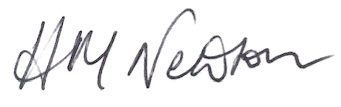 HM Newton